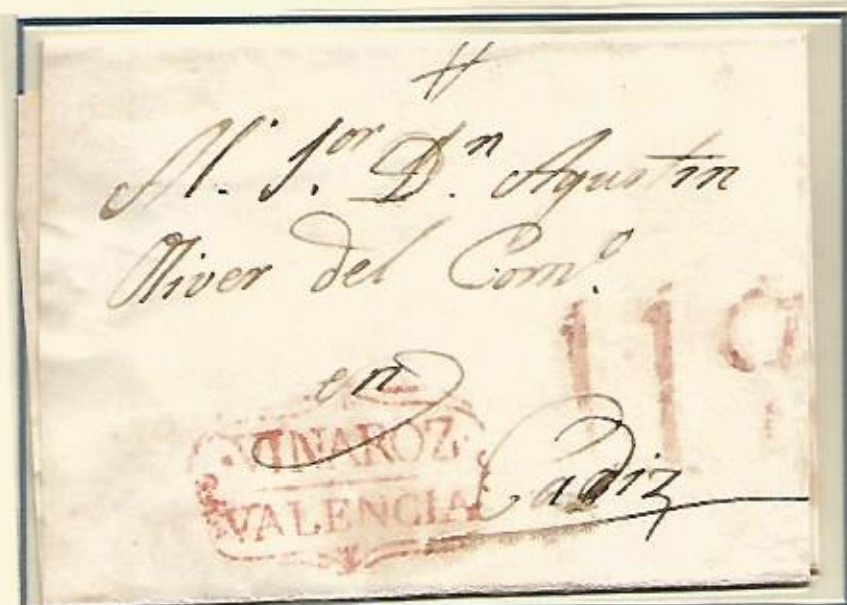 Al. Sor. Dn. Agustin
Oliver del Como.
en
Cadiz
·VINAROZ·
VALENCIA